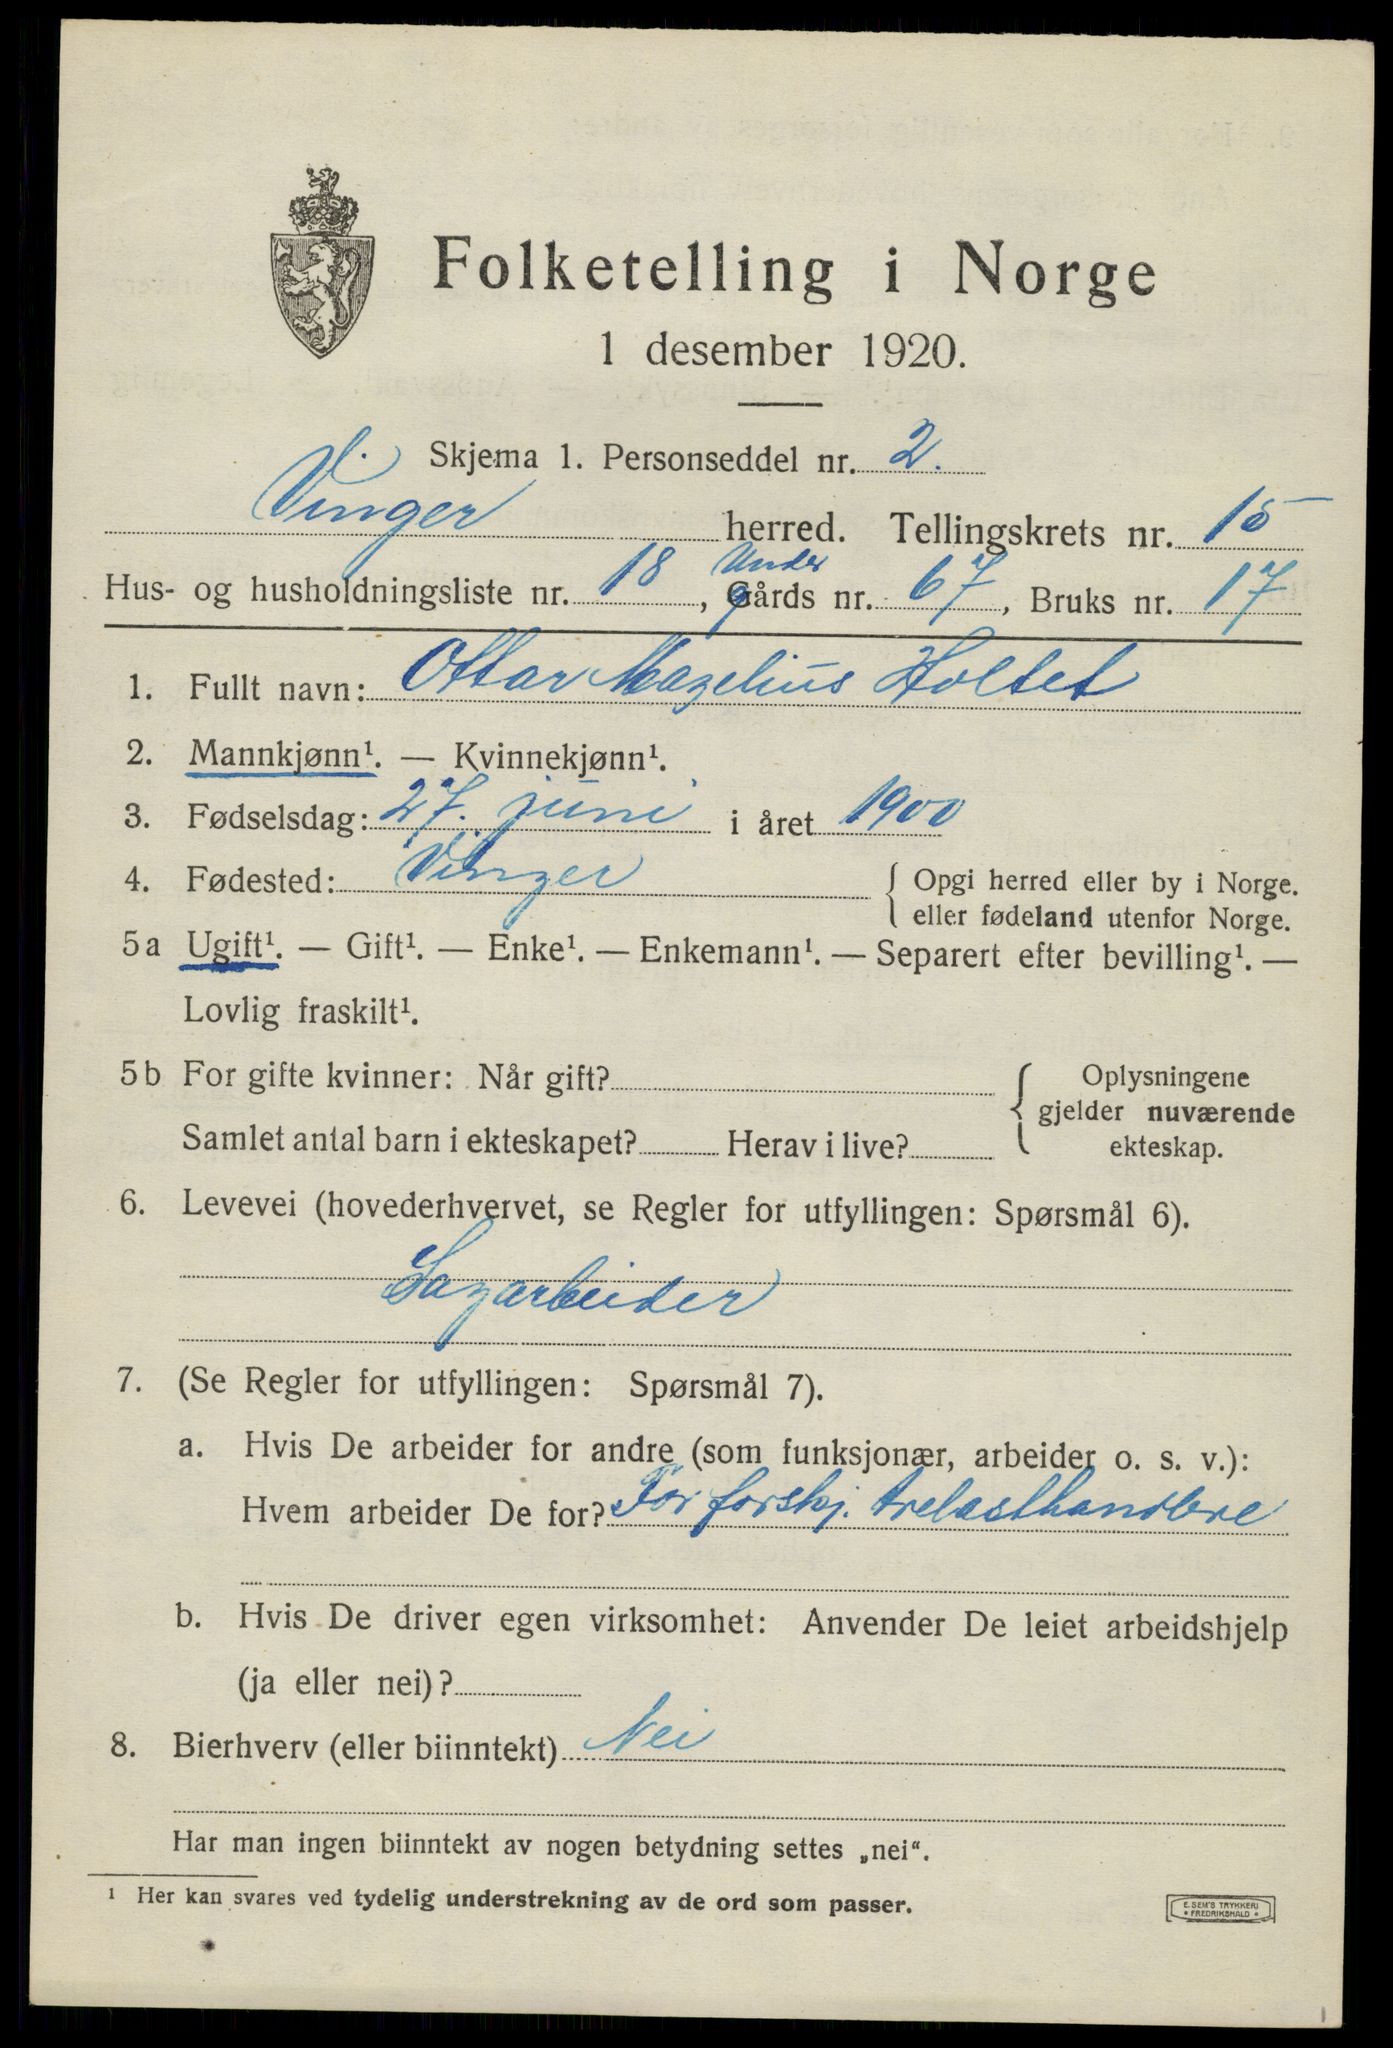 Folketelling i Norge
1 desember 1920.
Skjema 1. Personseddel nr. 2.
Vinger herred. Tellingskrets nr. 15
Under
Hus- og husholdningsliste nr. 18, Gårds nr. 67, Bruks nr. 17
1. Fullt navn: Ottar Magelius Holtet
2. Mannkjønn¹. — Kvinnekjønn¹.
3. Fødselsdag: 27. juni i året 1900
4. Fødested: Vinger { Opgi herred eller by i Norge.
eller fødeland utenfor Norge.
5a Ugift¹. — Gift¹. — Enke¹. — Enkemann¹. — Separert efter bevilling¹. —
Lovlig fraskilt¹.
5b For gifte kvinner: Når gift? { Oplysningene
gjelder nuværende
Samlet antal barn i ekteskapet? Herav i live? ekteskap.
6. Levevei (hovederhvervet, se Regler for utfyllingen: Spørsmål 6).
Sagarbeider
7. (Se Regler for utfyllingen: Spørsmål 7).
a. Hvis De arbeider for andre (som funksjonær, arbeider o. s. v.):
Hvem arbeider De for? For forskj. trelasthandlere
b. Hvis De driver egen virksomhet: Anvender De leiet arbeidshjelp
(ja eller nei)?
8. Bierhverv (eller biinntekt) Nei
Har man ingen biinntekt av nogen betydning settes „nei“.
¹ Her kan svares ved tydelig understrekning av de ord som passer.
E. SEM'S TRYKKERI
• FREDRIKSHALD •